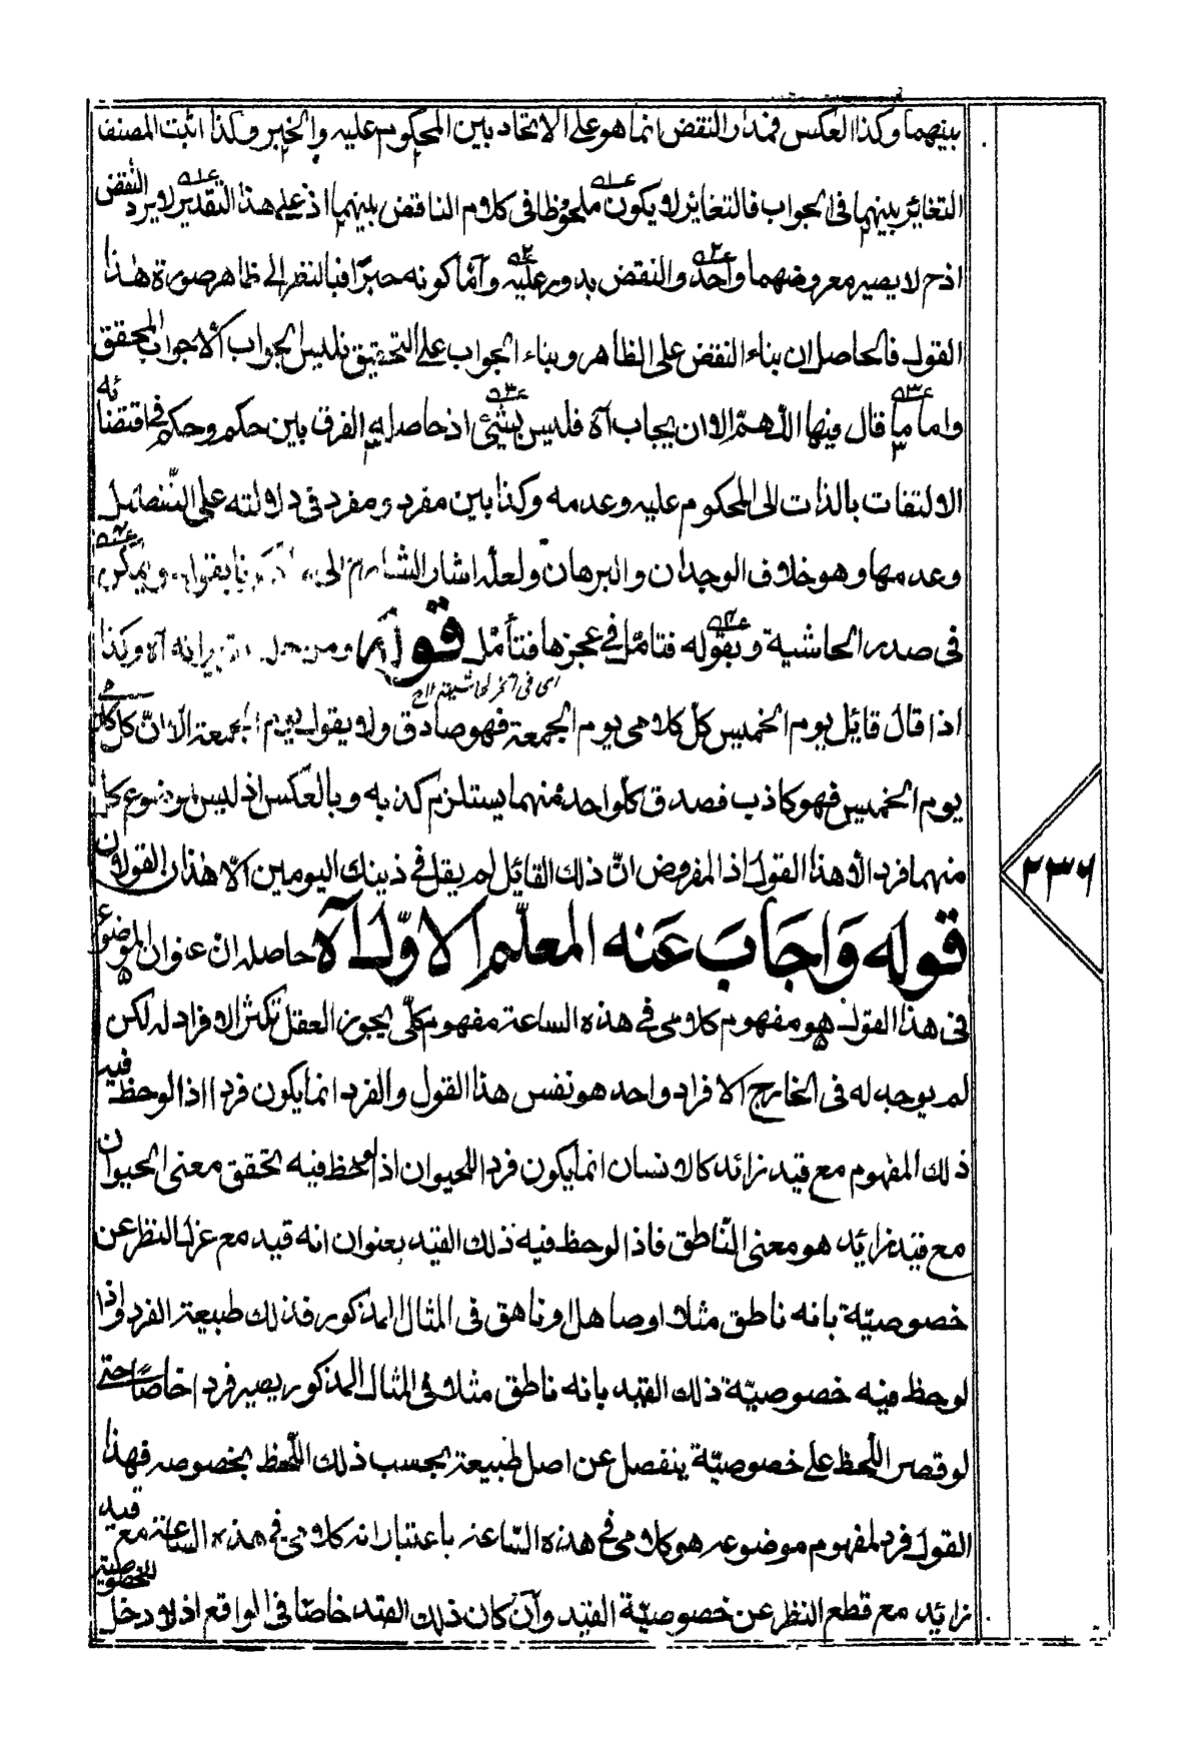 بينهما وكذا العكس فمدار النقض انما هو على الاتحاد بين المحكوم عليه والخبر وكذا اثبت المصنف
التغائر بينهما فى الجواب فالتغائر لا يكون ملحوظا فى كلام الناقض بينهما اذ على هذا التقدير لا يرد النقض
اذ ح لا يصير معروضهما واحد والنقض يدور عليه وأما كونه خبرًا فبالنظر الى ظاهر صورة هذا
القول فالحاصل ان بناء النقض على الظاهر وبناء الجواب على التحقيق فليس الجواب الا جواب المحقق
واما ما قال فيها اللهم الا ان يجاب آه فليس بشئ اذ حاصله الفرق بين حكم وحكم فى اقتضائه
الالتفات بالذات الى المحكوم عليه وعدمه وكذا بين مفرد ومفرد فى دلالته على التفصيل
وعدمها وهو خلاف الوجدان والبرهان ولعله اشار الشارح الى
فى صدر الحاشية وبقوله فتامل فى عجزها فتأمل قوله ومن آه وكذا
اى فى آخر الحاشية ١١ح
اذا قال قايل يوم الخميس كل كلامى يوم الجمعة فهو صادق ولا يقول يوم الجمعة الا انّ كل كلامى
يوم الخميس فهو كاذب فصدق كل واحد منهما يستلزم كذبه وبالعكس اذ ليس لموضوع كل
منهما فرد الا هذا القول اذ المفروض انّ ذلك القائل لم يقل فى ذينك اليومين الّا هذان القولان
قوله وَاجَابَ عَنه المعلّم الاوّل آه حاصله انّ عنوان الموضوع
فى هذا القول هو مفهوم كلامى فى هذه الساعة مفهوم كلّى يجوز العقل تكثر الافراد له لكن
لم يوجد له فى الخارج الا فرد واحد هو نفس هذا القول والفرد انما يكون فردا اذا لوحظ فيه
ذلك المفهوم مع قيد زائد كالانسان انما يكون فردا للحيوان اذا لوحظ فيه تحقق معنى الحيوان
مع قيد زائد هو معنى النّاطق فاذا لوحظ فيه ذلك القيد بعنوان انه قيد مع عزل النظر عن
خصوصيّة بانه ناطق مثلا او صاهل او ناهق فى المثال المذكور فذلك طبيعة الفرد واذا
لوحظ فيه خصوصيّة ذلك القيد بانه ناطق مثلا فى المثال المذكور يصير فردا خاصًا حتى
لو قصر اللّحظ على خصوصيّة ينفصل عن اصل طبيعة بحسب ذلك اللّحظ بخصوصه فهذا
القول فرد لمفهوم موضوعه هو كلامى فى هذه السّاعة باعتبار انه كلامى فى هذه السّاعة مع قيد
زائد مع قطع النظر عن خصوصيّة القيد وآن كان ذلك القيد خاصًا فى الواقع اذ لا دخل للخصوصية
٢٣٦